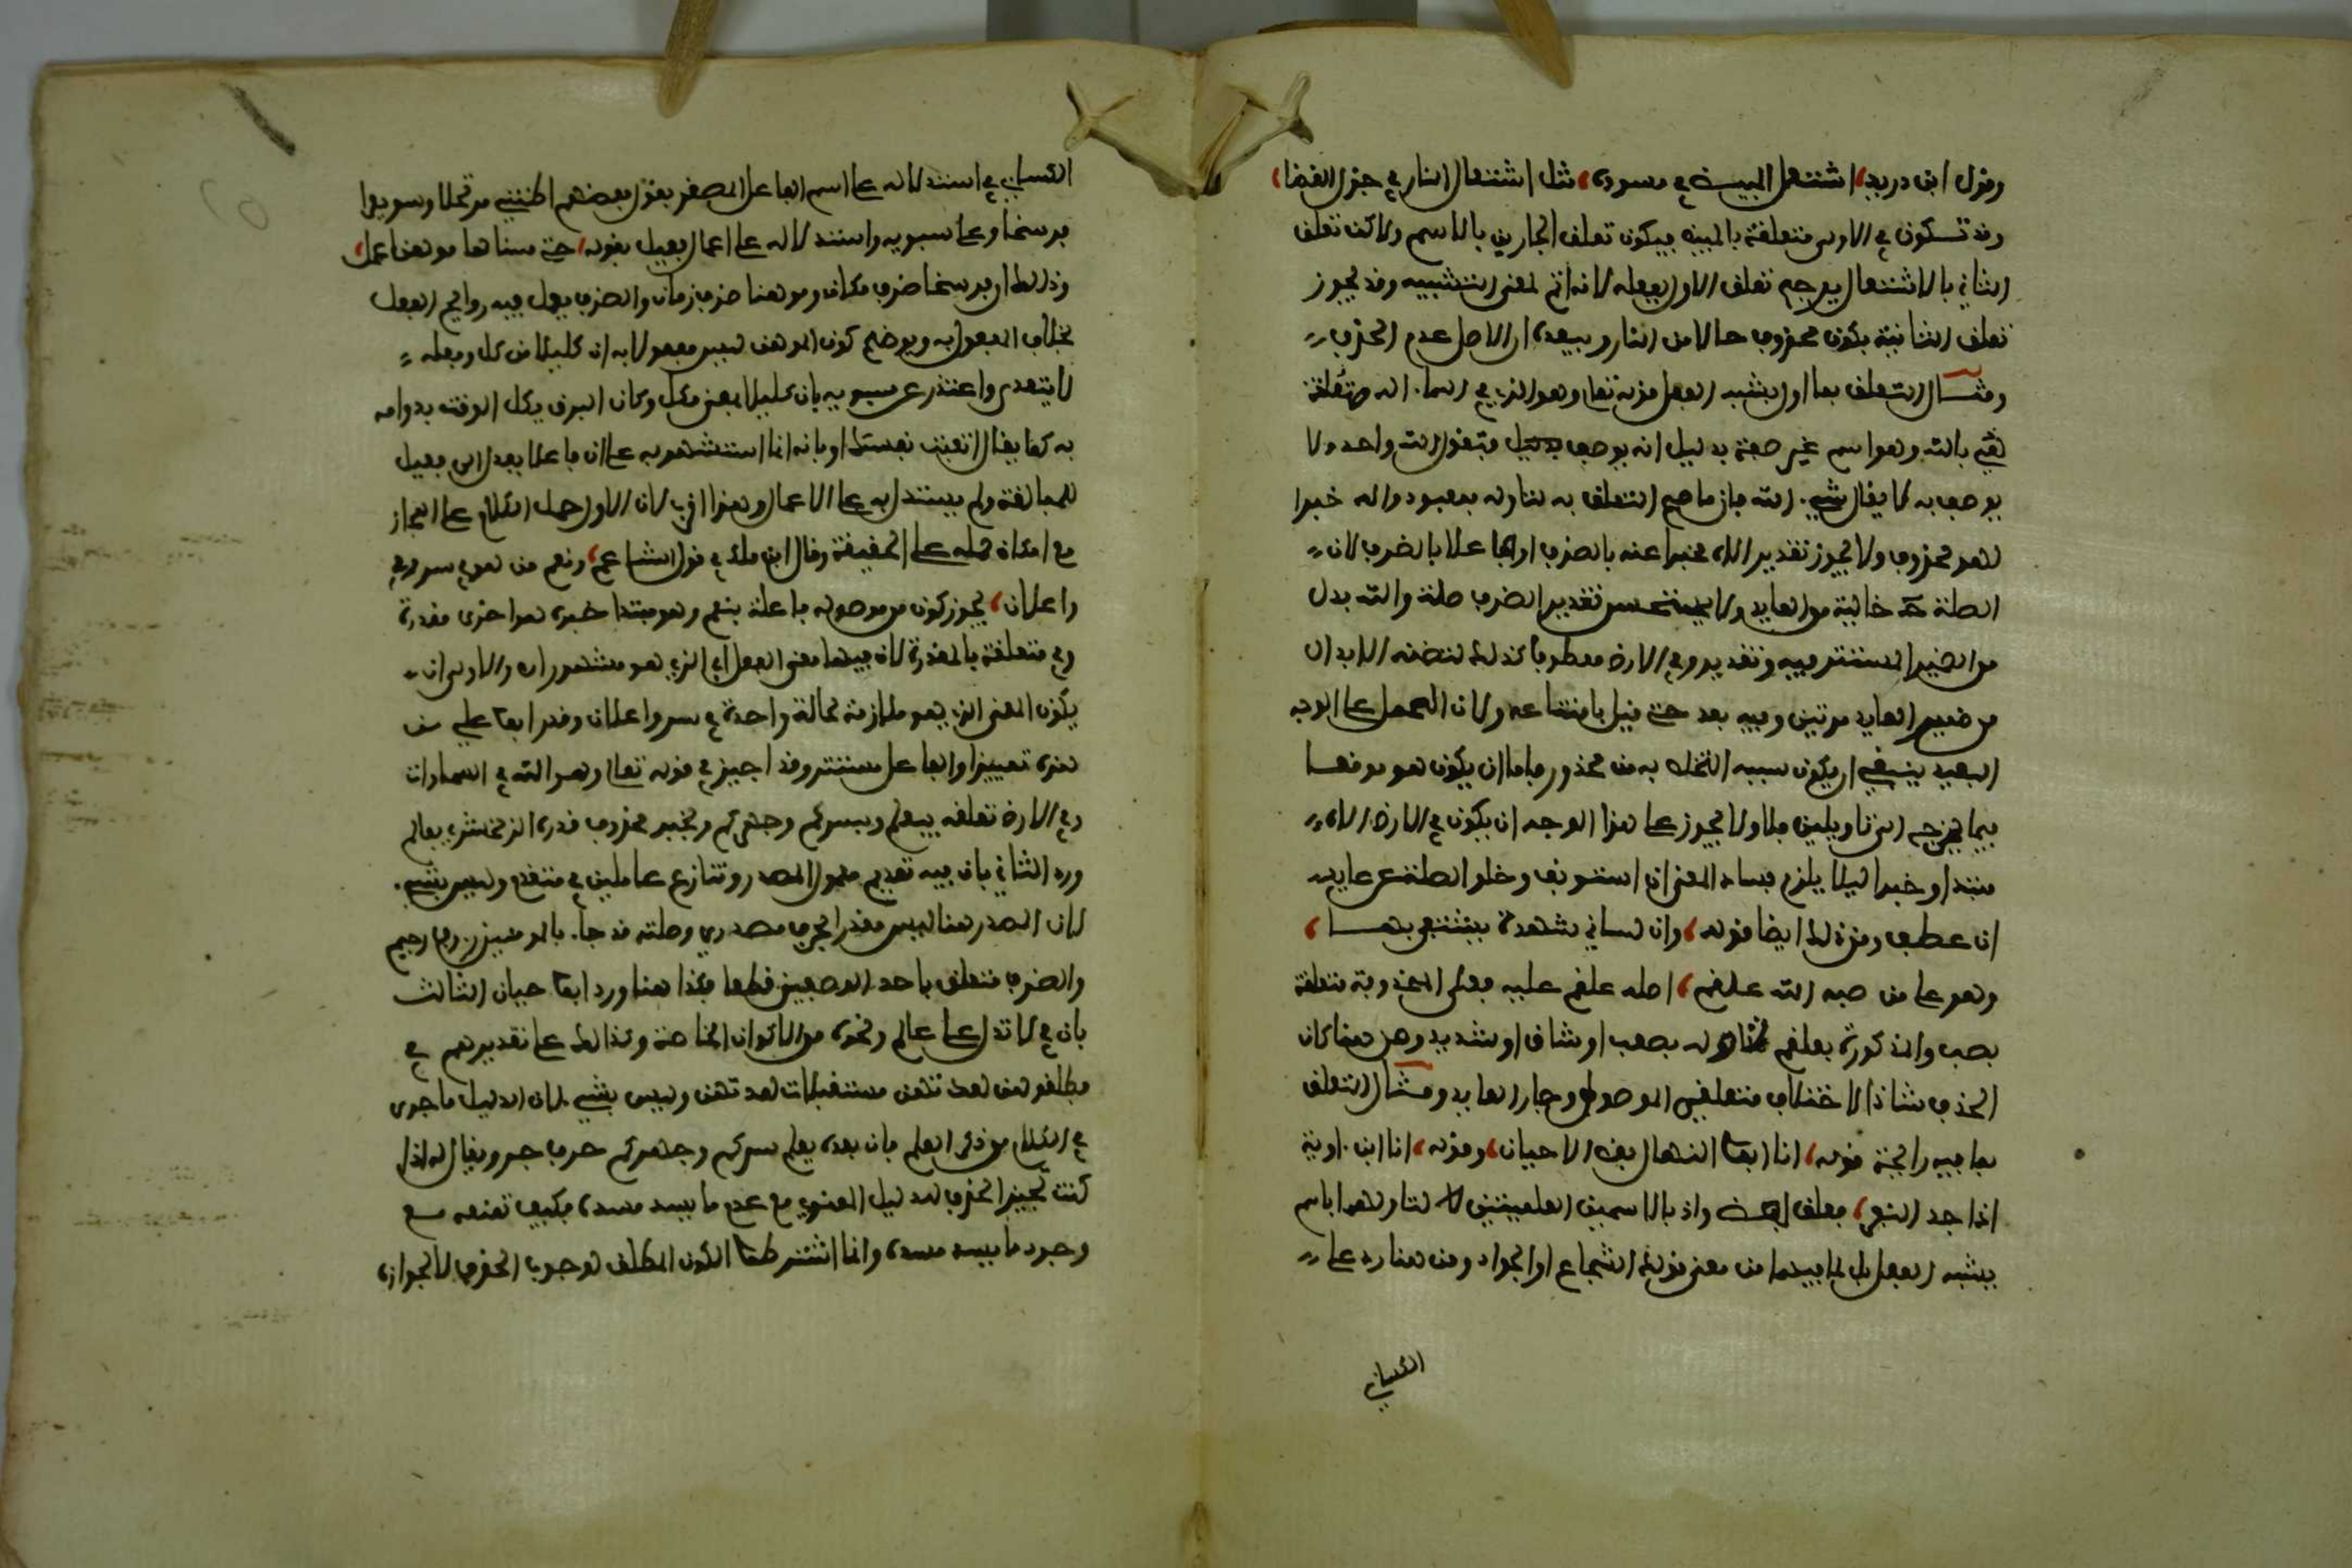 وقول ابن دريد، اشتعل المبيض في مسوده، مثل اشتعال النار في جزل الغضا،
وقد تكون في الاولى متعلقة بالمبيض فيكون تعلق الجارين بالاسم ولاكن تعلق
الثاني بالاشتعال يرجح تعلق الاول بفعله لانه اتم لمعنى التشبيه وقد يجوز
تعلق الثانية بكون محذوف حالا من النار ويبعده ان الاصل عدم الحذف
ومثال التعلق بما اول بشبه الفعل قوله تعالى وهو الذي في السماء اله متعلقة
بوصف به لا يقال شيء اله فانما صح التعلق به لتاوله بمعبود واله خبرا
لهو محذوف ولا يجوز تقدير اله مخبرا عنه بالظرف او فاعلا بالظرف لان
الصلة خالية من العايد ولا يحسن تقدير الظرف صلة واله بدل
من الضمير المستتر فيه وتقدير وفي الارض معطوفا كذلك لتضمنه الابدال
من ضمير العايد مرتين وفيه بعد حتى قيل بامتناعه ولان الحمل على الوجه
البعيد ينبغي ان يكون سببه التخلص به من محذور فاما ان يكون هو موقعا
فيما يحوج الى تاويلين فلا ولا يجوز على هذا الوجه ان يكون في الارض اله
مبتدا وخبرا ليلا يلزم فساد المعنى ان استونف وخلو الصلة عن عايد
ان عطف ومن ذلك ايضا قوله، وان لساني شهدة يشتفى بها،
وهو على من صبه الله علقم، اصله علقم عليه فعلى المحذوفة متعلقة
بصب والمذكورة بعلقم لتاوله بصعب او شاق او شديد ومن هنا كان
الحذف شاذا لاختلاف متعلقي الموصول وجار العايد ومثال التعلق
بما فيه رائحة قوله، انا ابو المنهال بعض الاحيان، وقوله، انا ابن ماوية
اذا جد النقر، فعلق بعض واذ بالاسمين العلمين لا لتاولهما باسم
يشبه الفعل بل لما فيهما من معنى قولك الشجاع او الجواد ومن هنا رد على
الكسائي
الكسائي في استدلاله على اسم الفاعل المصغر بقول بعضهم اظنني مرتحلا وسويرا
فرسخا وعلى سيبويه واستدلاله على اعمال فعيل بقوله، حتى شئاها موهنا عمل،
وذلك ان فرسخا ظرف مكان وموهنا ظرف زمان والظرف يعمل فيه روايح الفعل
بخلاف المفعول به ويوضح كون الموهن ليس مفعولا به ان كليلا من كل وفعله
لا يتعدى واعتذر عن سيبويه بان كليلا بمعنى مكل وكان البرق يكل الوقت بدوامه
به كما يقال اتعبت نفسك او بانه انما استشهد به على ان فاعلا يعدل الى فعيل
للمبالغة ولم يستدل به على الاعمال وهذا اقرب لان الاول حمل الكلام على المجاز
مع امكان حمله على الحقيقة وقال ابن ملك في قول الشاعر، ونعم من هو في سر وفي
واعلان، يجوز كون من موصولة فاعلة بنعم وهو مبتدا خبره هو اخرى مقدرة
وفي متعلقة بالمقدرة لان فيهما معنى الفعل اي الذي هو مشهور اه والاولى ان
يكون المعنى الذي هو ملازم لحالة واحدة في سر واعلان وقدر ابو علي من
هذه تمييزا والفاعل مستتر وقد اجيز في قوله تعالى وهو الله في السماوات
وفي الارض تعلقه بيعلم وبسركم وجهركم وبخبر محذوف قدره الزمخشري بعالم
ورد الثاني بان فيه تقديم معمول المصدر وتنازع عاملين في متقدم وليس بشيء
لان المصدر هنا ليس مقدرا بحرف مصدري وصلته قد جاء بالمومنين روف رحيم
والظرف متعلق باحد الوصفين قطعا فكذا هنا ورد ابو حيان الثالث
بان في لا تدل على عالم ونحوه من الاكوان الخاصة وكذلك على تقديرهم في
فطلقوهن لعدتهن مستقبلات لعدتهن وليس بشيء لان الدليل ما جرى
في الكلام من ذكر العلم فان بعده يعلم سركم وجهركم حرف جر ويقال له اذا
كنت تجيز الحذف للدليل المعنوي مع عدم ما يسد مسده فكيف تمنعه مع
وجود ما يسد مسده وانما اشترطنا الكون المطلق لوجوب الحذف لا لجوازه